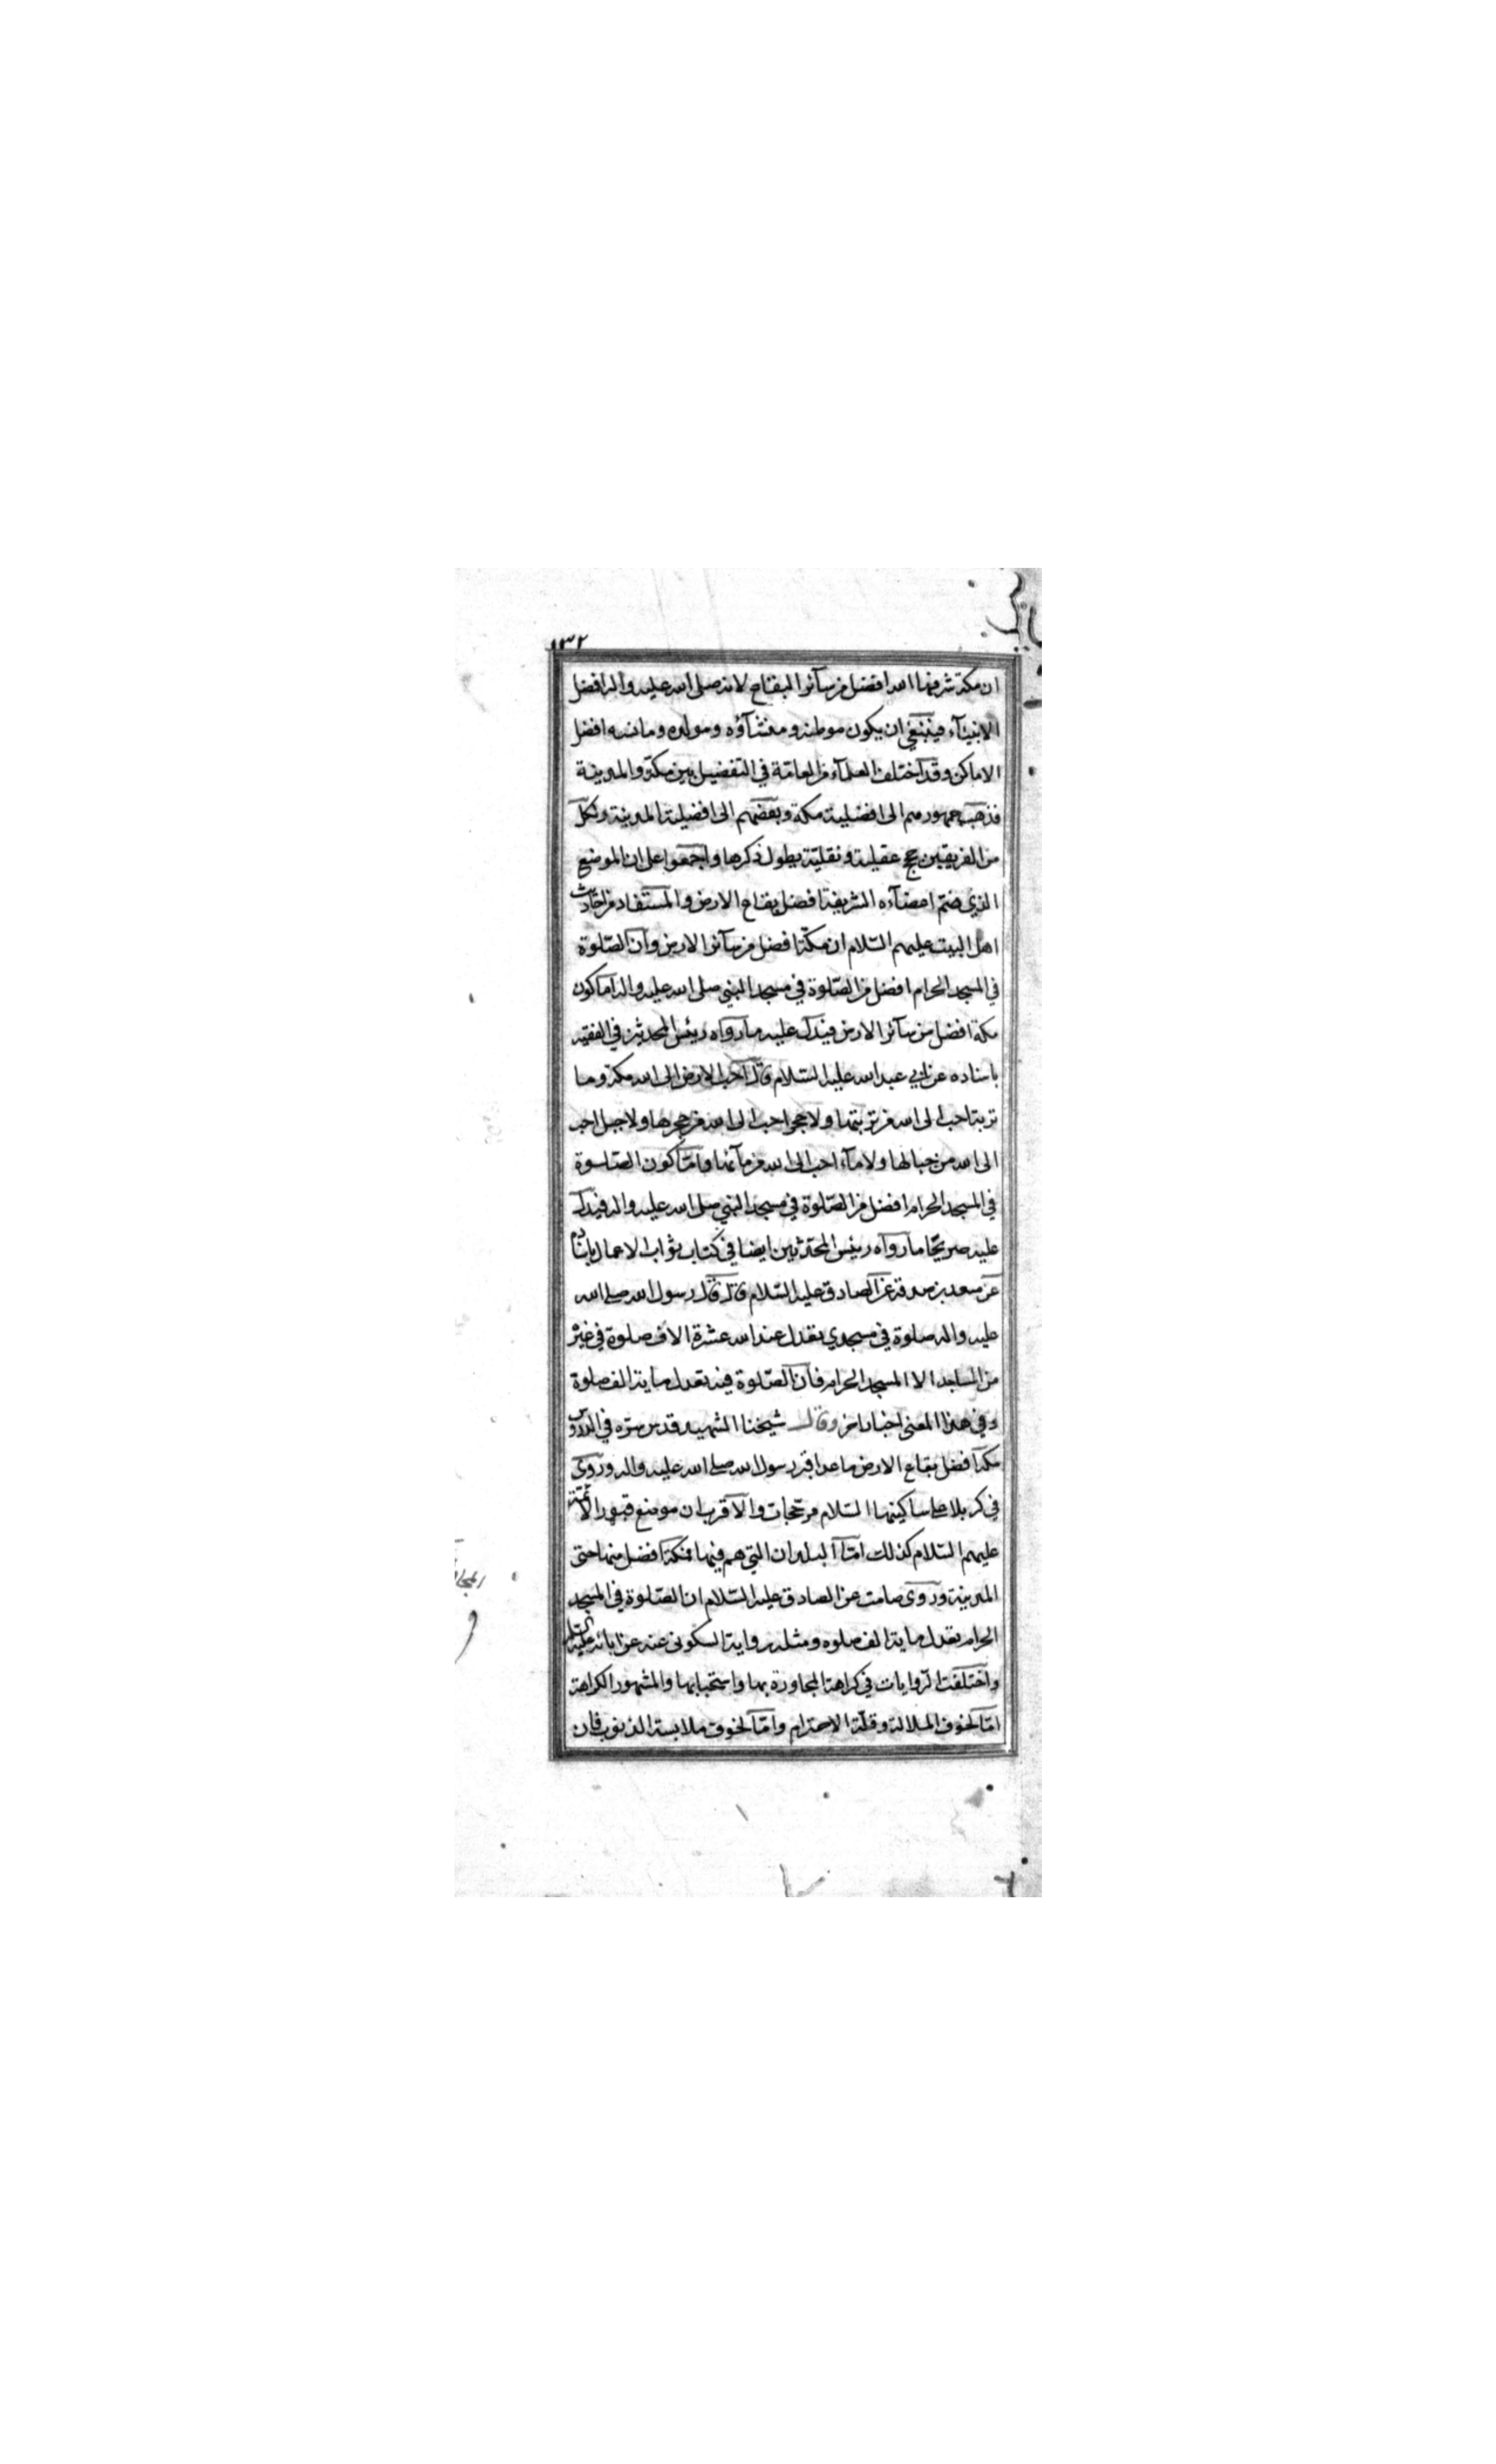 ١٣٢
ان مكة شرفها الله افضل من سآئر البقاع لانه صلى الله عليه واله افضل
الانبيآء فينبغي ان يكون موطنه ومنشآؤه ومولده ومانسه افضل
الاماكن وقد اختلف العلمآء من العامّة في التفضيل بين مكّة والمدينة
فذهب جمهورهم الى افضلية مكة وبعضهم الى افضيلة المدينة ولكلّ
من الفريقين حجج عقلية ونقليّة يطول ذكرها واجمعوا على ان الموضع
الذي ضمّ اعضآءه الشريفة افضل بقاع الارض والمستفاد من احاديث
اهل البيت عليهم السّلام ان مكّة افضل من سآئر الارض وان الصّلوة
في المسجد الحرام افضل من الصّلوة في مسجد النبي صلى الله عليه واله اما كون
مكة افضل من سآئر الارض فيدل عليه ما رواه رئيس المحدثين في الفقيه
باسناده عن ابي عبد الله عليه السّلام قال احب الارض الى الله مكة وما
تربة احب الى الله من تربتها ولا حجر احب الى الله من حجرها ولا جبل احب
الى الله من جبالها ولا مآء احب الى الله من مآئها وامّا كون الصّلوة
في المسجد الحرام افضل من الصّلوة في مسجد النبي صلى الله عليه واله فيدل
عليه صريحًا ما رواه رئيس المحدّثين ايضا في كتاب ثواب الاعمال باسناده
عن مسعد بن صدقة عن الصادق عليه السّلام قال قال رسول الله صلى الله
عليه واله صلوة في مسجدي تعدل عند الله عشرة الاف صلوة في غيره
من المساجد الا المسجد الحرام فان الصّلوة فيه تعدل ماية الف صلوة
وفي هذا المعنى اخبار اخر وقال شيخنا الشهيد قدس سرّه في الدروس
مكة افضل بقاع الارض ما عدا قبر رسول الله صلى الله عليه واله وروى
في كربلا على ساكينها السّلام مرجّحات والاقرب ان موضع قبور الائمّة
عليهم السّلام كذلك امّا البلدان التي هم فيها فمكة افضل منها حتى
المدينة وروى صامت عن الصادق عليه السّلام ان الصّلوة في المسجد
الحرام تعدل ماية الف صلوه ومثله رواية السكونى عنه عن ابائه عليهم السلام
واختلفت الرّوايات في كراهة المجاورة بها واستحبابها والمشهور الكراهة
امّا لخوف الملالة وقلّة الاحترام وامّا لخوف ملابسة الذنوب فان